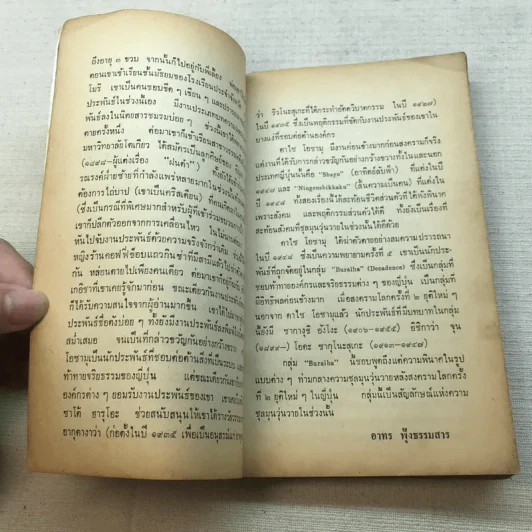 ถึงอายุ ๓ ขวบ จากนั้นก็ไปอยู่กับพี่เลี้ยง
ตอนเขาเข้าเรียนชั้นมัธยมของโรงเรียนประจำ
โมริ เขาเป็นคนชอบขีด ๆ เขียน ๆ และ
ประพันธ์ในช่วงนี้เอง มีงานประเภทบทความ
พันธ์ลงในนิตยสารชมรมบ่อย ๆ ช่วงนี้เขาได้
ตายครั้งหนึ่ง ต่อมาเขาก็เข้าเรียนสาขาวรรณ
มหาวิทยาลัยโตเกียว ได้สมัครเป็นลูกศิษย์ของ
(๑๘๙๘–ผู้แต่งเรื่อง "ฝนดำ")
รณรงค์ฝ่ายซ้ายที่กำลังแพร่หลายมากในช่วงนั้น
ต้องการไถ่บาป (เขาเป็นคริสเตียน) ที่ตนมี
(ซึ่งเป็นกรณีที่พิเศษมากสำหรับผู้ที่เข้าร่วมขบวน
เขาก็ปลีกตัวออกจากการเคลื่อนไหว ในใน
หันไปจับงานประพันธ์ด้วยความจริงจังกว่าเดิม
หญิงร้านคอฟฟี่ช้อบแถวกินซ่าที่มีสามีแล้วไป
กัน หล่อนตายไปเพียงคนเดียว ต่อมาเขาก็อยู่กิน
เกอิชาที่เขาเคยรู้จักมาก่อน ขณะเดียวกันงาน
ก็ได้รับความสนใจจากผู้อ่านมากขึ้น เขาได้
ประพันธ์ชื่อดังบ่อย ๆ ทั้งยังมีงานประพันธ์ลงพิมพ์
สม่ำเสมอ จนเป็นที่กล่าวขวัญกันอย่างกว้าง
โอซามุเป็นนักประพันธ์ที่ชอบต่อต้านสิ่งที่เป็น
ท้าทายจริยธรรมของญี่ปุ่น แต่ขณะเดียวกัน
องค์กรต่าง ๆ ยอมรับงานประพันธ์ของเขา
ซาโต้ ฮารุโอะ ช่วยสนับสนุนให้เขาได้รางวัล
ยากุตางาว่า (ก่อตั้งในปี ๑๙๓๕ เพื่อเป็นอนุสรณ์
ว่า ริวโนะสุเกะที่ได้กระทำอัตวิบาตกรรม ในปี ๑๙๒๗)
ในปี ๑๙๓๕ ซึ่งเป็นพฤติกรรมที่ขัดกับงานประพันธ์ของเขาใน
บางแง่ที่ชอบต่อต้านองค์กร
ดาไซ โอซามุ มีงานเขียนออกมามากก่อนสงครามก็จริง
แต่งานที่ได้รับการกล่าวขวัญกันอย่างกว้างขวางทั้งในและนอก
ประเทศญี่ปุ่นนั้นคือ "Shayo" (อาทิตย์อัสดง) ที่แต่งในปี
๑๙๔๗ และ "Ningenshikkaku" (สิ้นความเป็นคน) ที่แต่งใน
ปี ๑๙๔๘ ทั้งสองเรื่องนี้ได้สะท้อนชีวิตส่วนตัวที่ได้พังพินาศ
เพราะสังคม และพฤติกรรมส่วนตัวได้ดี ทั้งยังเป็นเรื่องที่
สะท้อนสังคมที่ชุลมุนวุ่นวายในช่วงนั้นได้ดีด้วย
ดาไซ โอซามุ ได้ฆ่าตัวตายอย่างสมความปรารถนา
ในปี ๑๙๔๘ ซึ่งเป็นความพยายามครั้งที่ ๕ เขาเป็นนักประ-
พันธ์ที่ถูกจัดอยู่ในกลุ่ม "Buraiha" (Decadence) ซึ่งเป็นกลุ่มที่
ชอบท้าทายองค์กรและจริยธรรมต่าง ๆ ของญี่ปุ่น เป็นกลุ่มที่
มีอิทธิพลค่อนข้างมาก เมื่อสงครามโลกครั้งที่ ๒ ยุติใหม่ ๆ
นอกจาก ดาไซ โอซามุแล้ว นักประพันธ์ที่มีบทบาทมากในกลุ่ม
นี้ยังมี ซากางูชิ อังโงะ (๑๙๐๖–๑๙๕๕) อิชิกาว่า จุน
(๑๘๙๙–) โอดะ ซากุโนะสุเกะ (๑๙๑๓–๑๙๔๗)
กลุ่ม "Buraiha" นี้ชอบพูดถึงแต่ความพินาศในรูป
แบบต่าง ๆ ท่ามกลางความชุลมุนวุ่นวายหลังสงครามโลกครั้ง
ที่ ๒ ยุติใหม่ ๆ ในญี่ปุ่น กลุ่มนี้เป็นสัญลักษณ์แห่งความ
ชุลมุนวุ่นวายในช่วงนั้น
อาทร ฟุ้งธรรมสาร